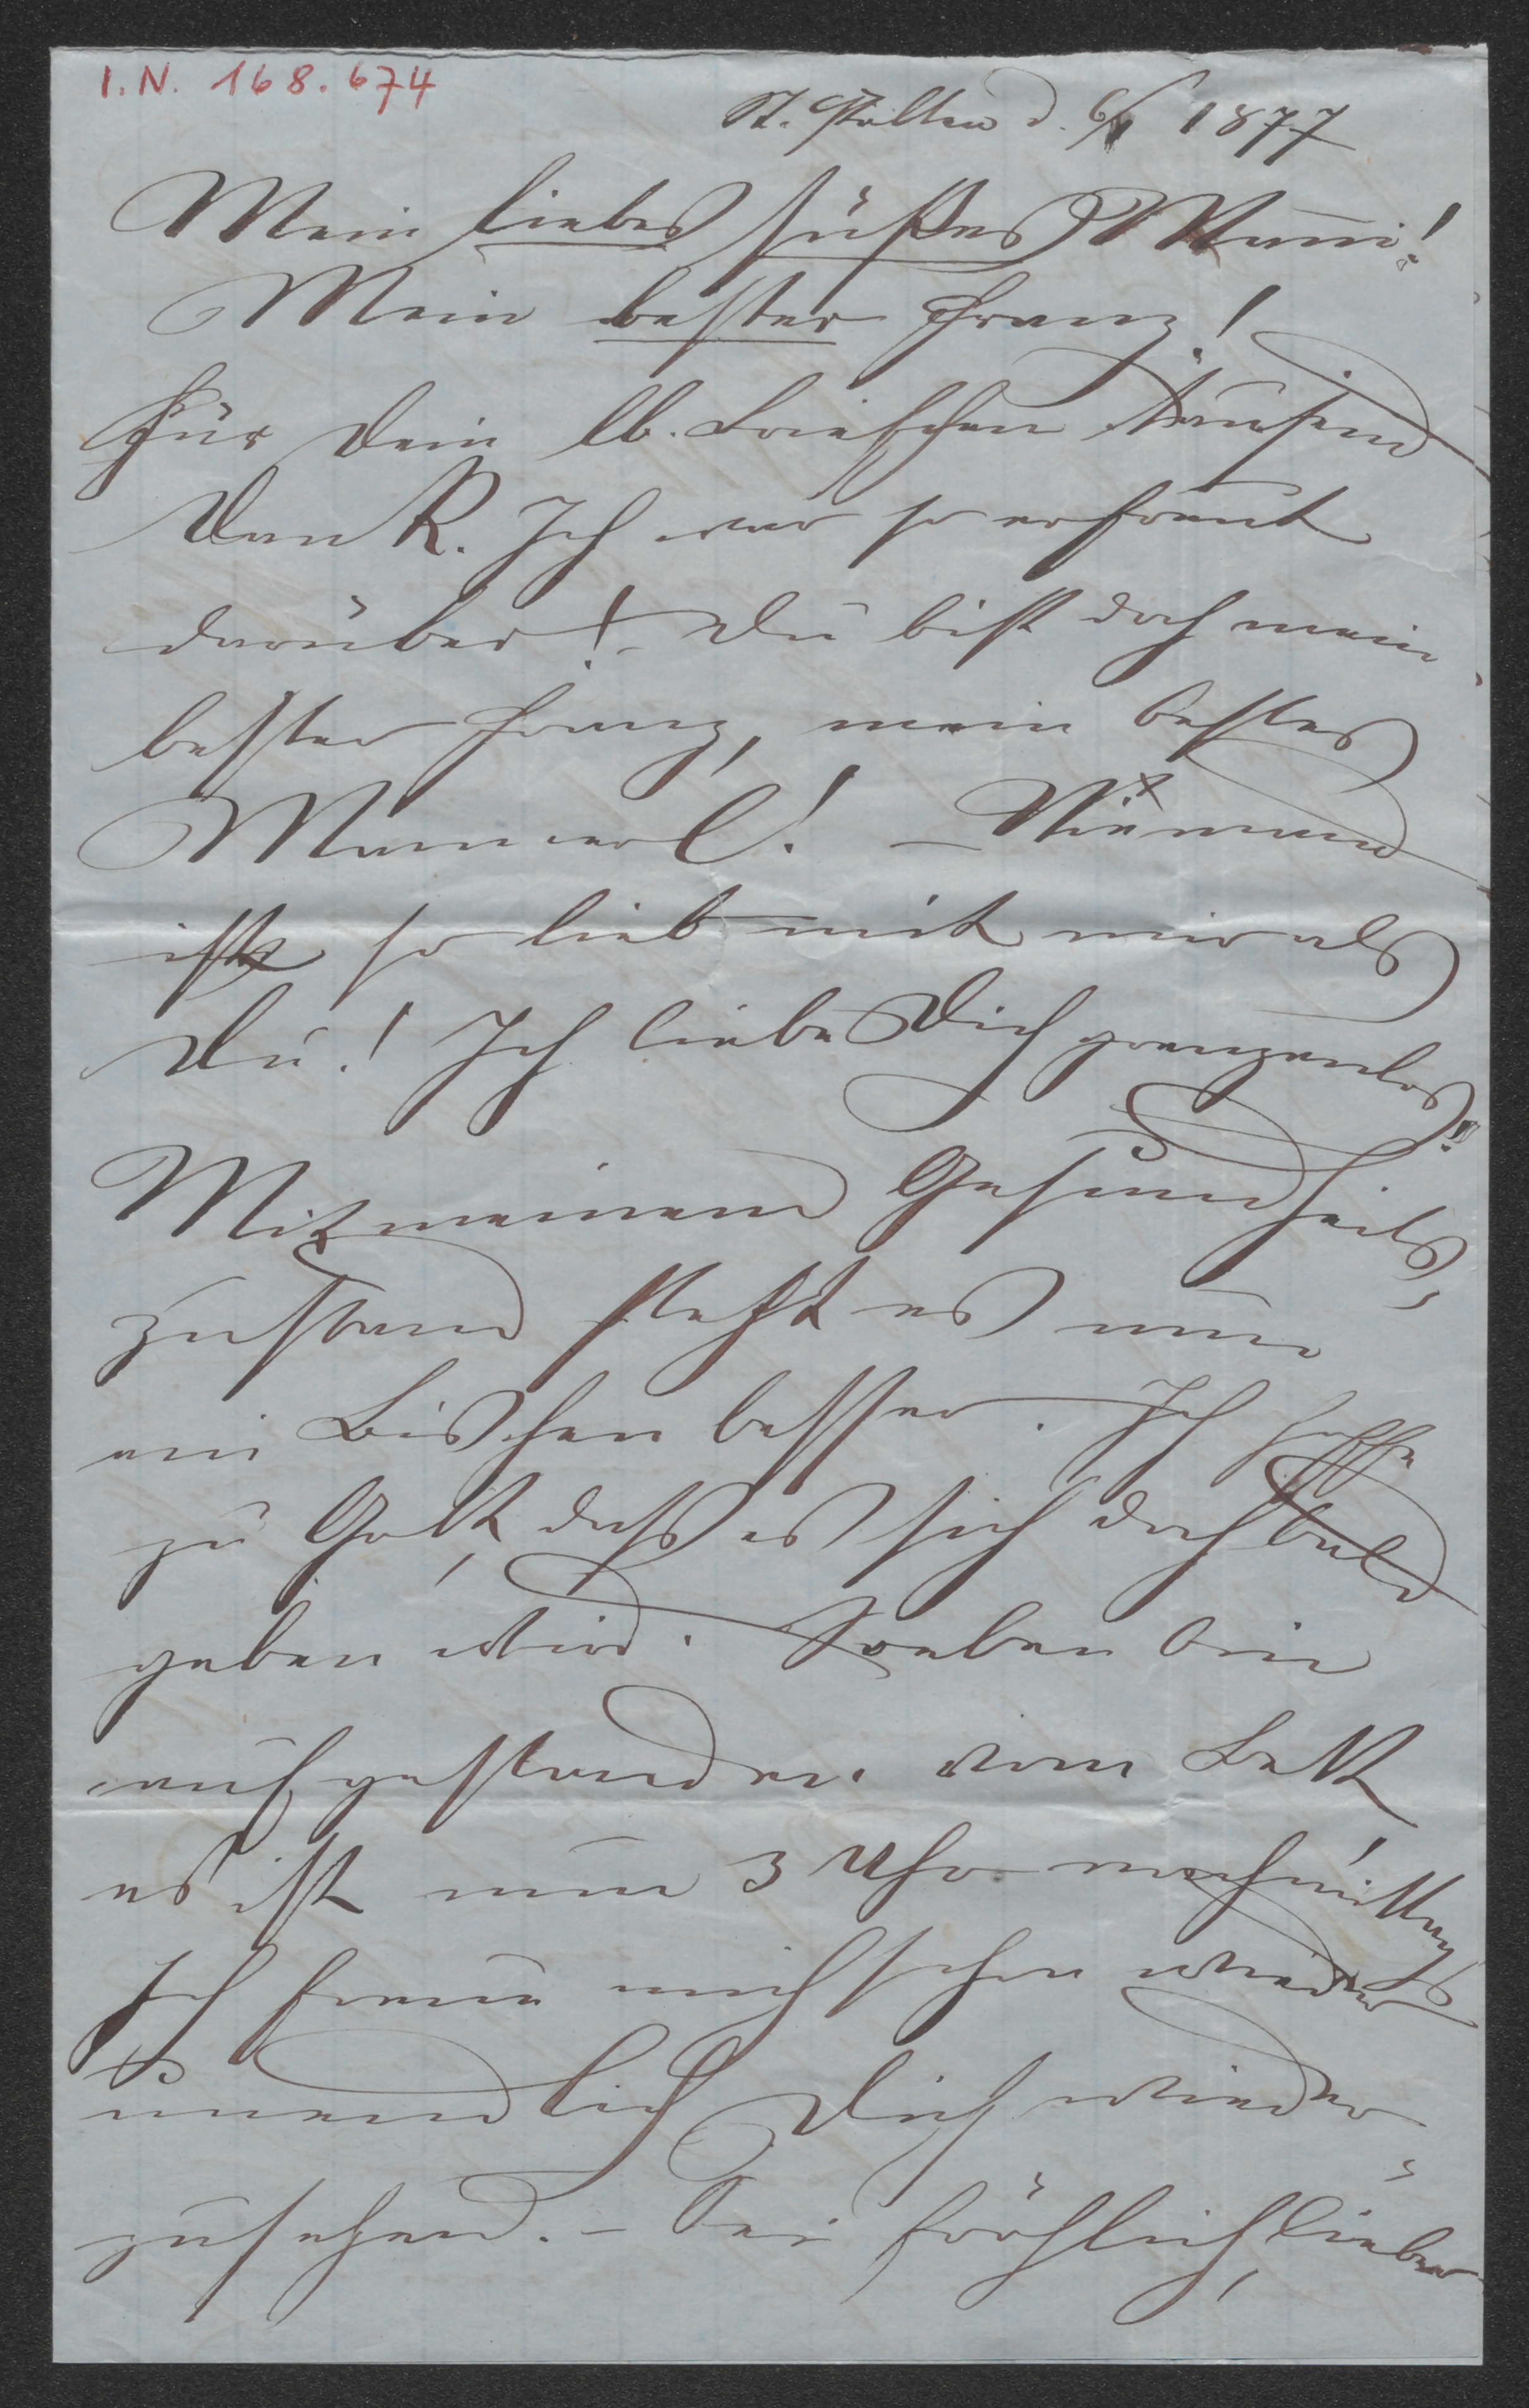 I.N. 168.674
St. Pölten d. 6/1 1877
Mein liebes süßes Mumi!
Mein bester Franz!
Für Dein lb. Briefchen tausend
Dank. Ich war so erfreut
darüber! – Du bist doch mein
bester Franz, mein bestes
Mannerl! – Niemand
ist so lieb mit mir als
Du! Ich liebe Dich grenzenlos!!
Mit meinem Gesundheits-
zustand steht es nun
ein Bischen besser. Ich hoffe
zu Gott, daß es sich doch bald
geben wird. Soeben bin
aufgestanden vom Bett,
es ist nun 3 Uhr nachmittags
Ich freue mich schon wieder
unendlich Dich wieder-
zusehen. – Sei fröhlich, lieber